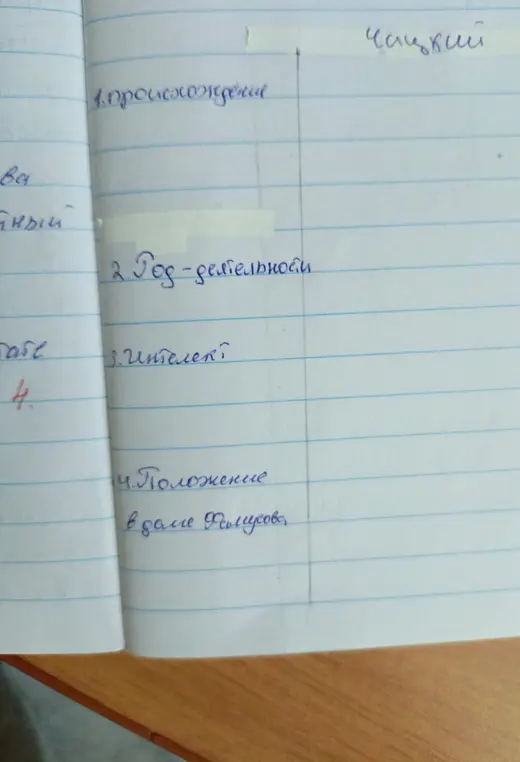 Чацкий
1. происхождение
ва
тный
2. Год-деятельности
3. Интелект
4.
4. Положение
в доме Фамусова